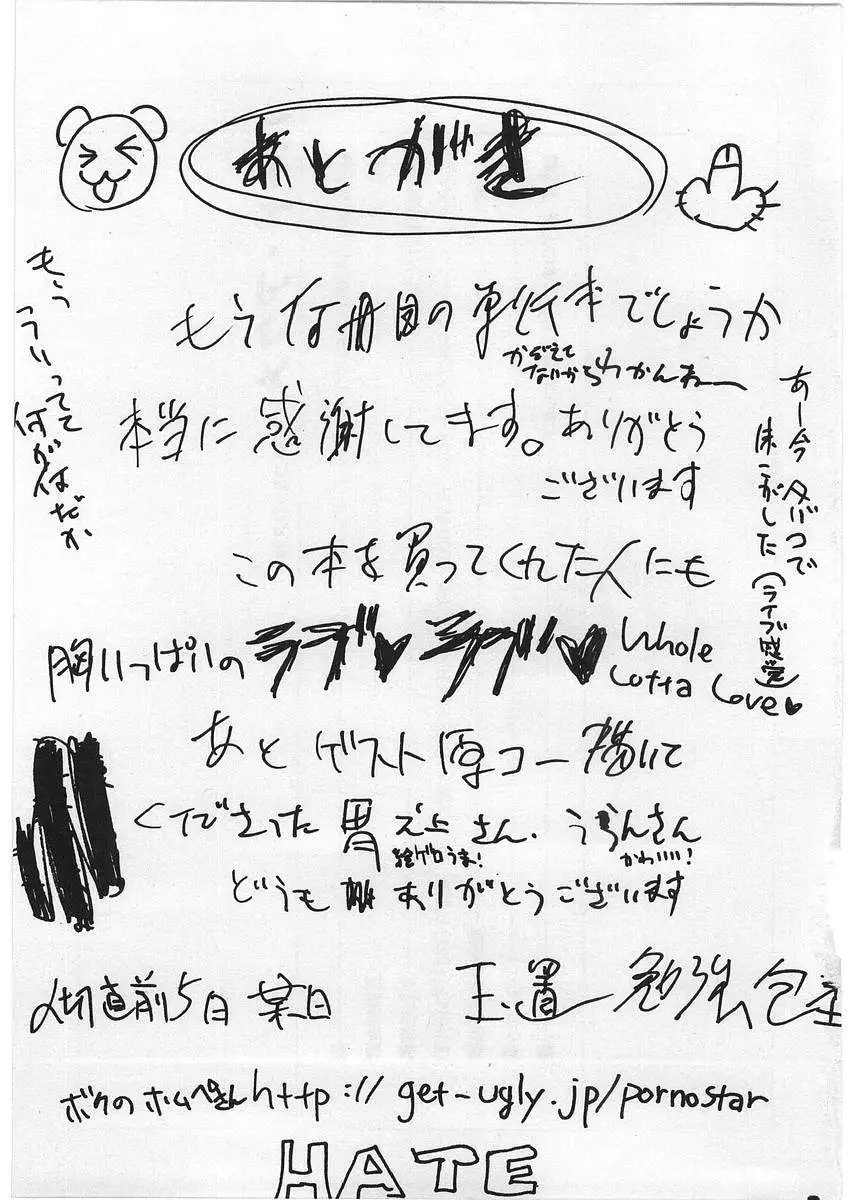 あとがき
もう何冊目の単行本でしょうか
かぞえて
ないからわかんねー
本当に感謝してます。ありがとう
ございます
この本を買ってくれた人にも
胸いっぱいのラブ♥ラブ♥
Whole
Lotta Love♥
あとゲスト原コー描いて
くださった胃之上さん、うらんさん
絵ゲロうま!
かわいい!
どうもありがとうございます
〆切直前5日 某日
玉置勉強
ボクのホムペさんhttp://get-ugly.jp/pornostar
HATE
もう
こういってて
何が何だか
あー今タバコで
床こがした(ライブ感覚)